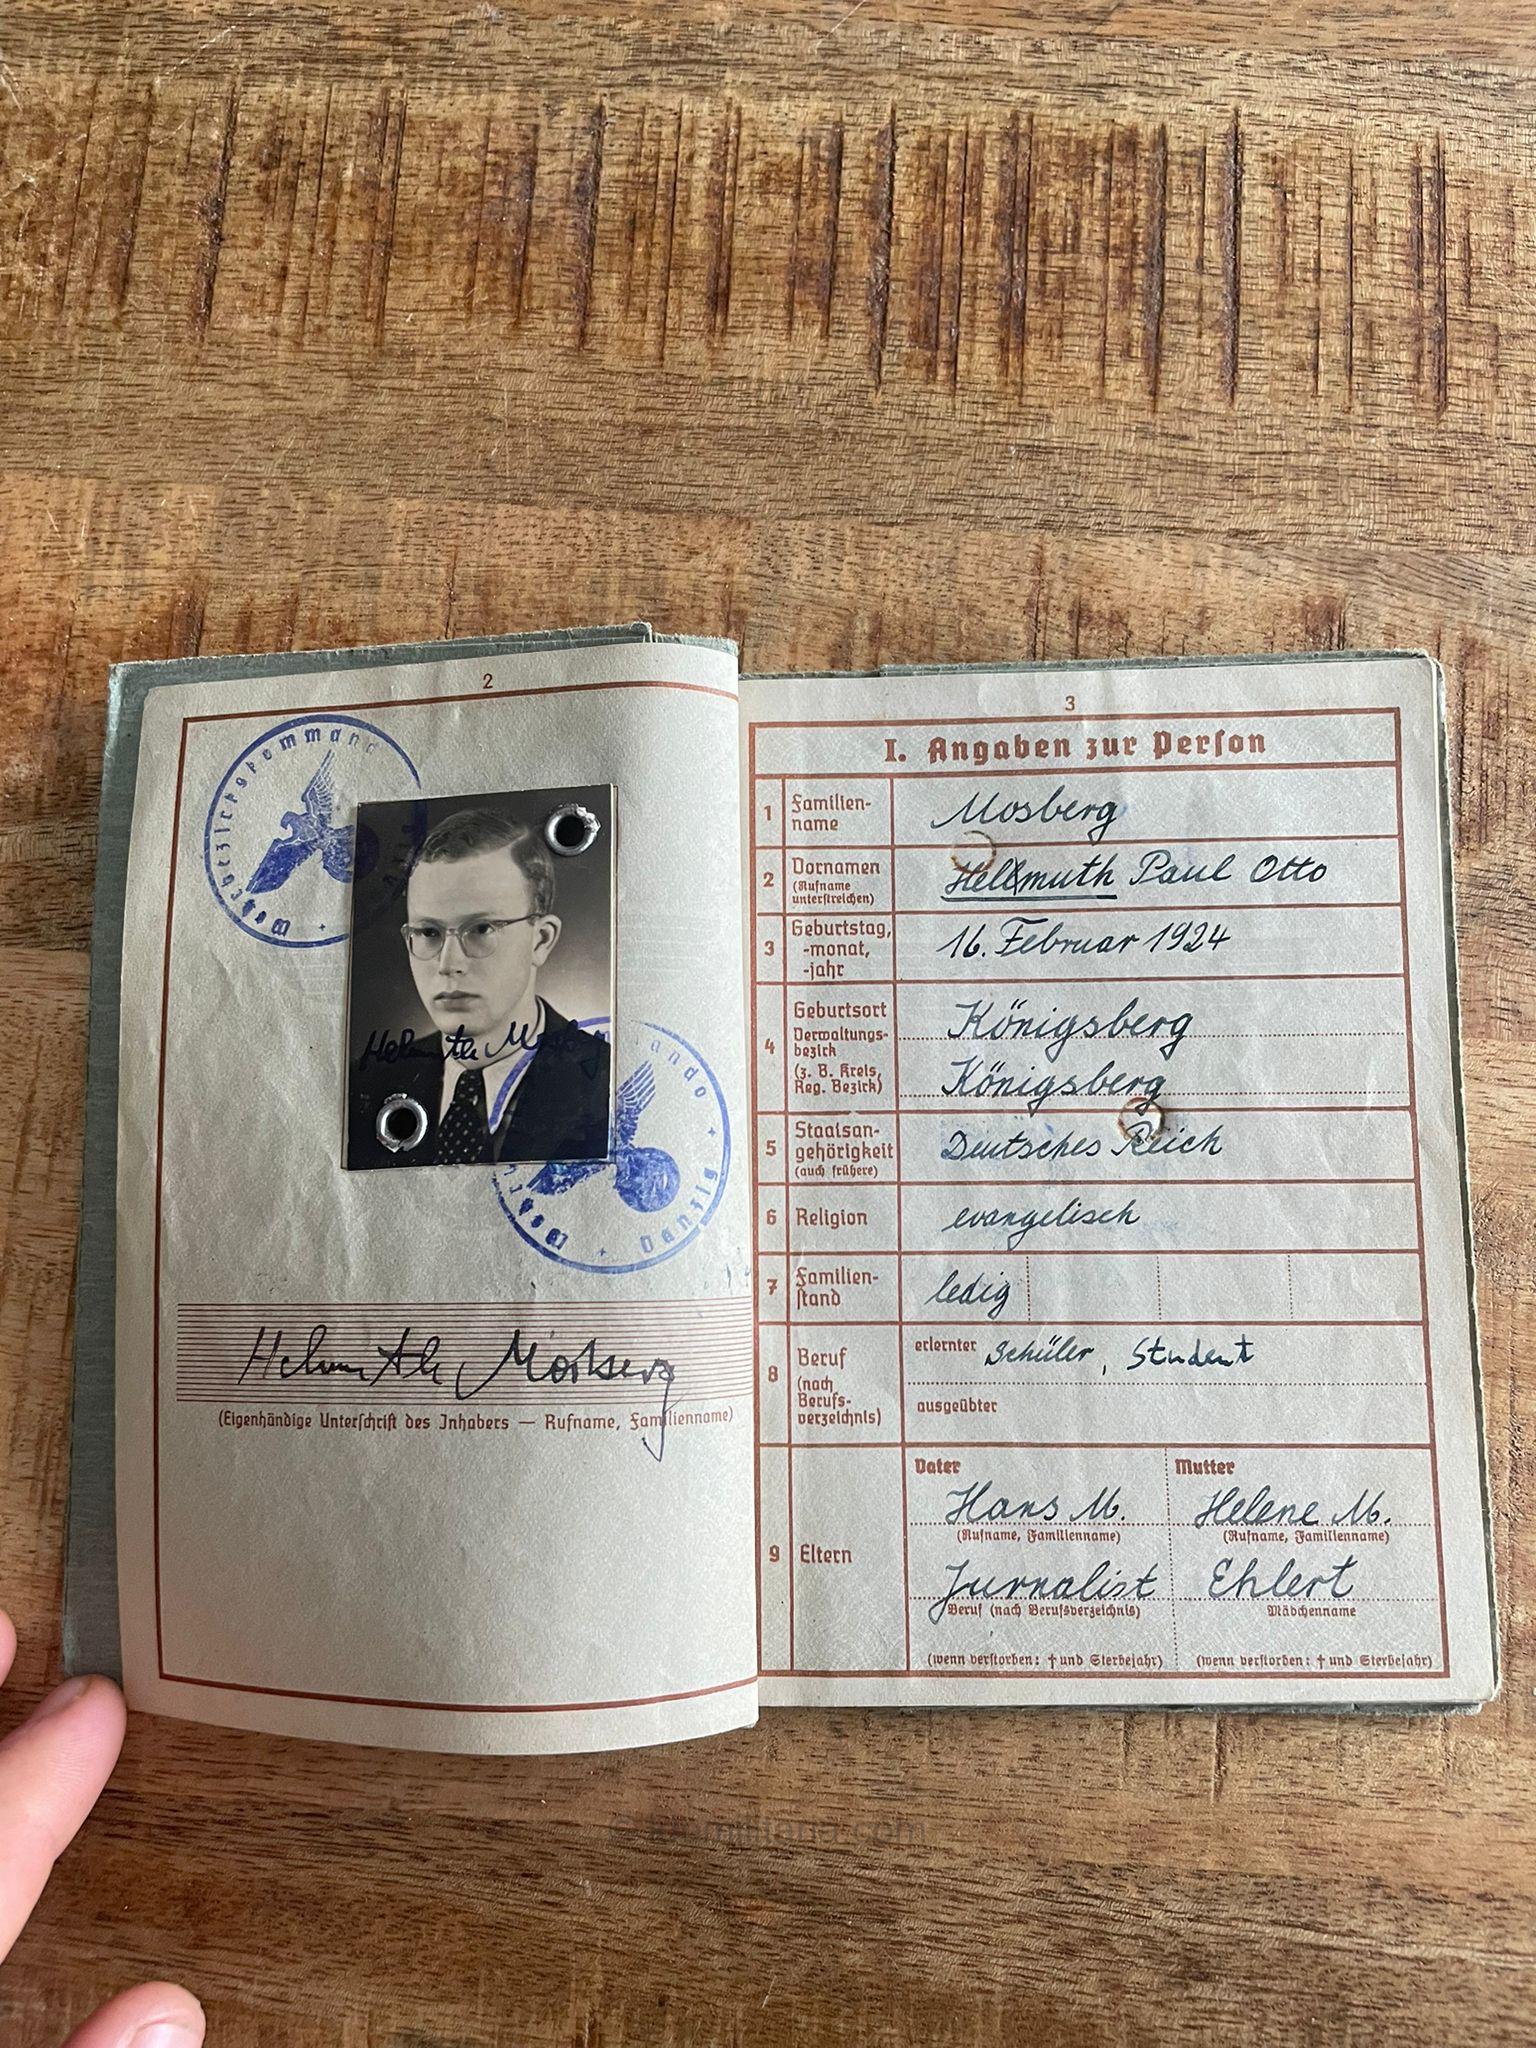 2
Wehrbezirkskommand
Helmuth Mosberg
ando
Danzig
Helmuth Mosberg
(Eigenhändige Unterschrift des Inhabers — Rufname, Familienname)
3
I. Angaben zur Person
1 Familien-
name
Mosberg
2 Vornamen
(Rufname
unterstreichen)
Hellmuth Paul Otto
3 Geburtstag,
-monat,
-jahr
16. Februar 1924
4 Geburtsort
Verwaltungs-
bezirk
(z. B. Kreis,
Reg. Bezirk)
Königsberg
Königsberg
5 Staatsan-
gehörigkeit
(auch frühere)
Deutsches Reich
6 Religion
evangelisch
7 Familien-
stand
ledig
8 Beruf
(nach
Berufs-
verzeichnis)
erlernter Schüler, Student
ausgeübter
9 Eltern
Vater
Hans M.
(Rufname, Familienname)
Jurnalist
Beruf (nach Berufsverzeichnis)
(wenn verstorben: † und Sterbejahr)
Mutter
Helene M.
(Rufname, Familienname)
Ehlert
Mädchenname
(wenn verstorben: † und Sterbejahr)